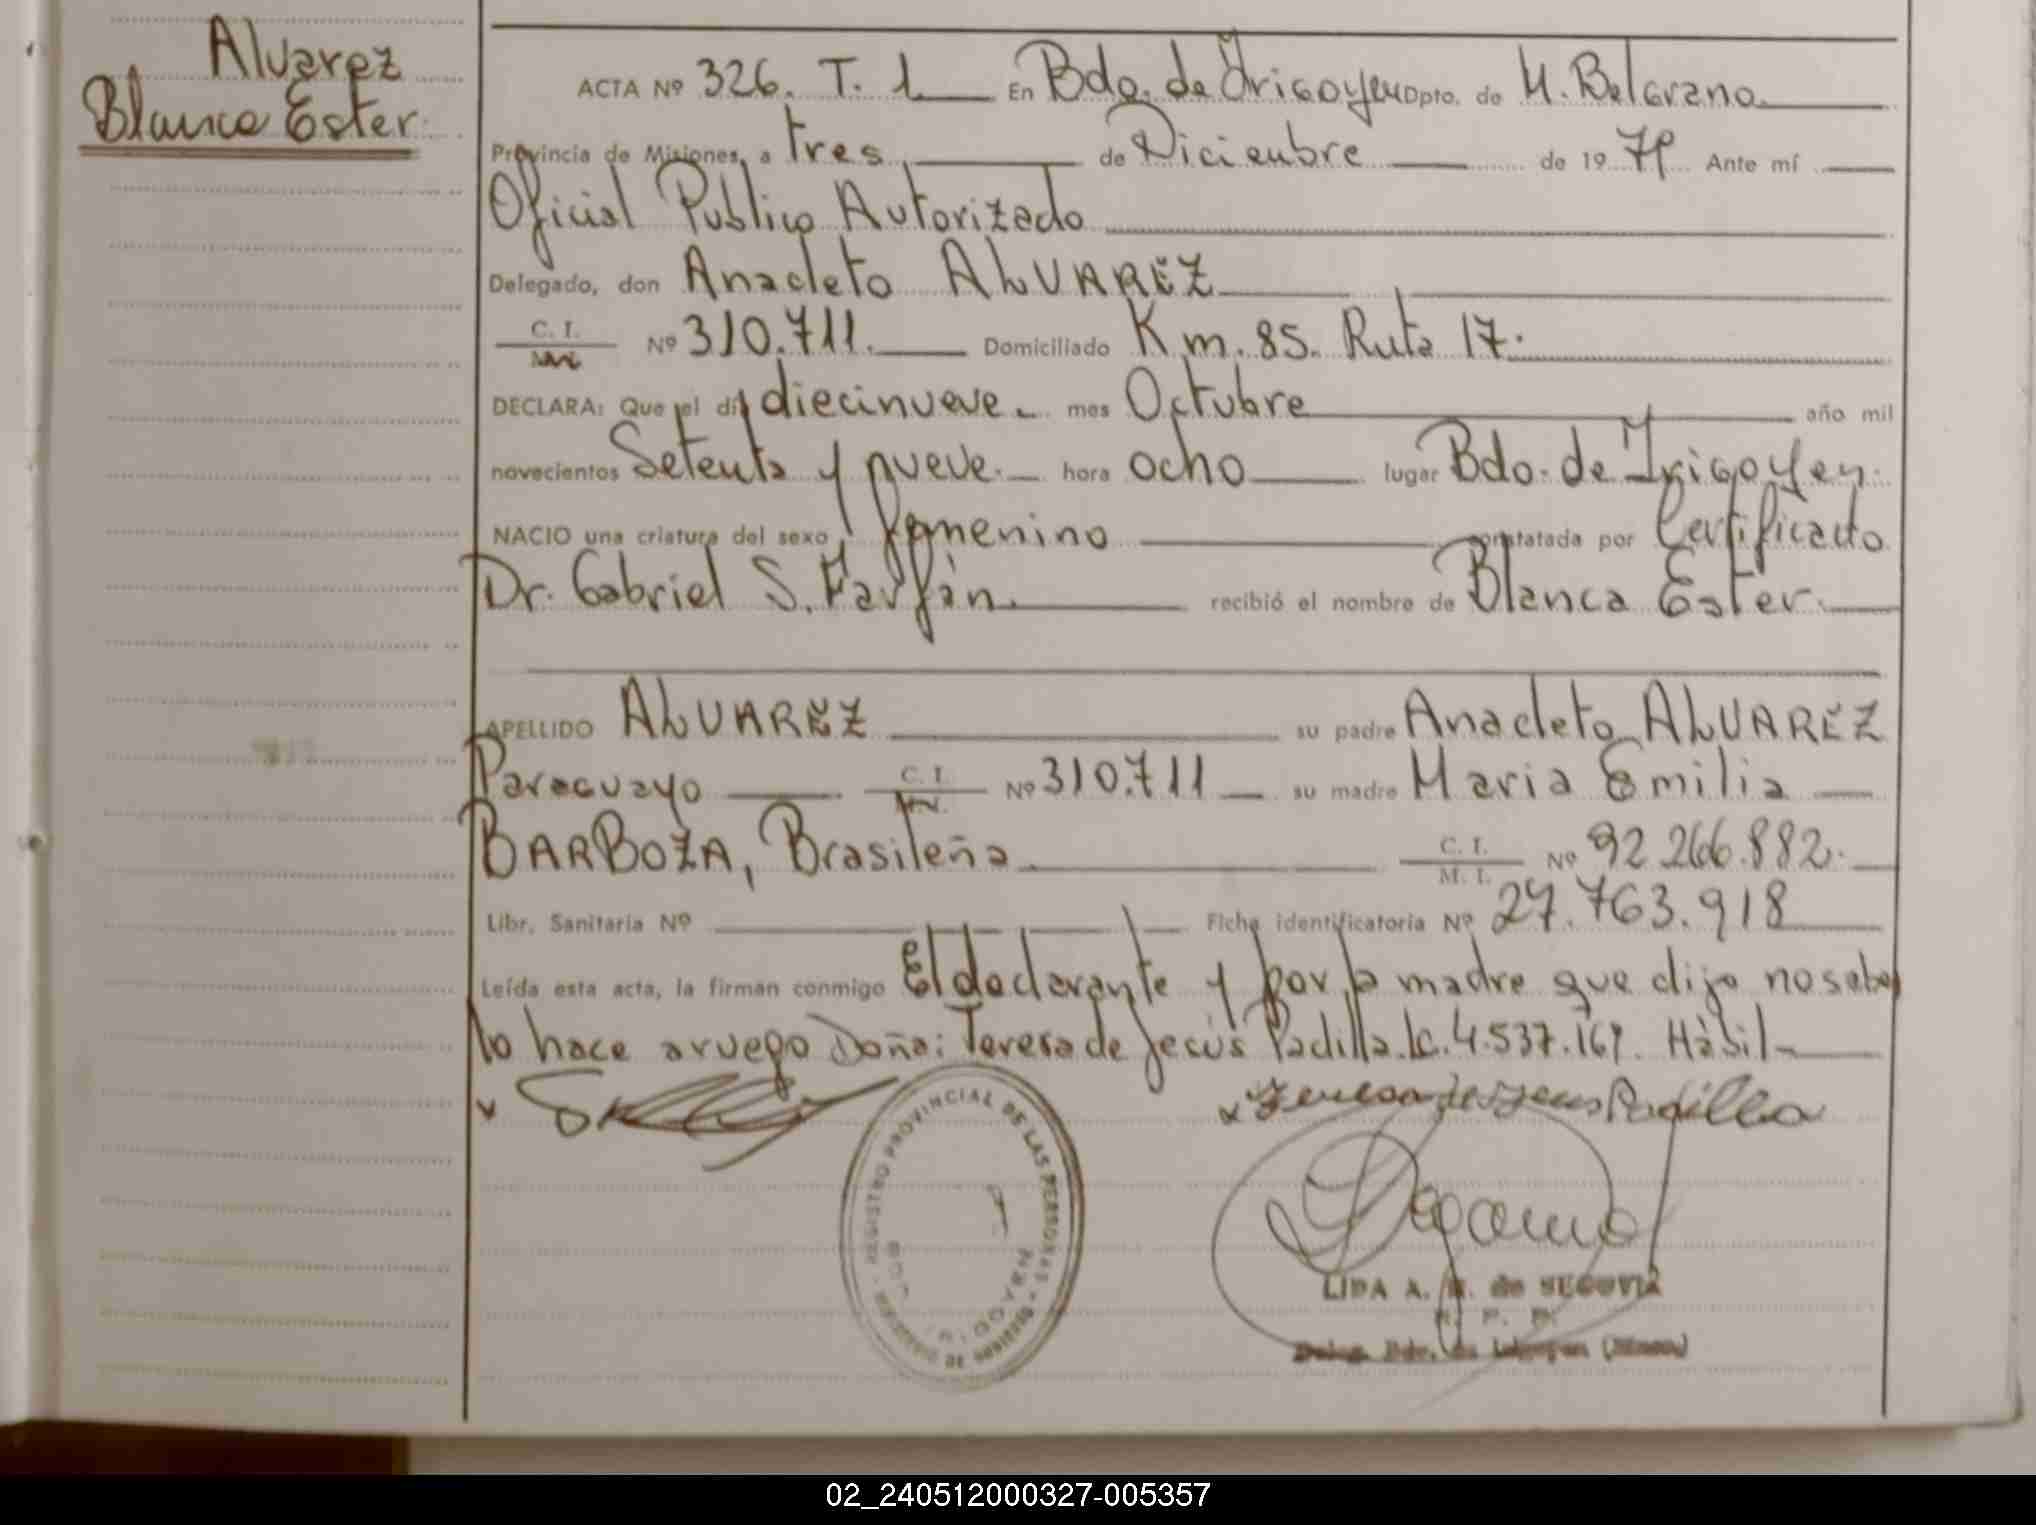 Alvarez
Blanca Ester
ACTA Nº 326. T. 1. En Bdo. de Irigoyen Dpto. de M. Belgrano.
Provincia de Misiones, a tres de Diciembre de 1979 Ante mí
Oficial Publico Autorizado
Delegado, don Anacleto ALVAREZ
C. I. Nº 310.711. Domiciliado Km. 85. Ruta 17.
DECLARA: Que el dí diecinueve. mes Octubre año mil
novecientos Setenta y nueve. hora ocho lugar Bdo. de Irigoyen.
NACIO una criatura del sexo femenino constatada por Certificado
Dr. Gabriel S. Farfán. recibió el nombre de Blanca Ester.
APELLIDO ALVAREZ su padre Anacleto ALVAREZ
Paraguayo C. I. Nº 310.711 su madre Maria Emilia
BARBOZA, Brasileña C. I. M. I. Nº 92.266.882.
Libr. Sanitaria Nº Ficha identificatoria Nº 27.763.918
Leída esta acta, la firman conmigo El declarante y por la madre que dijo no saber
lo hace a ruego Doña: Teresa de Jesús Padilla. lc. 4.537.169. Hábil
x x Teresa de Jesus Padilla
REGISTRO PROVINCIAL DE LAS PERSONAS
LIDA A. de SEGOVIA
02_240512000327-005357